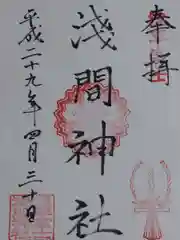 奉拝
浅間神社
平成二十九年四月三十日